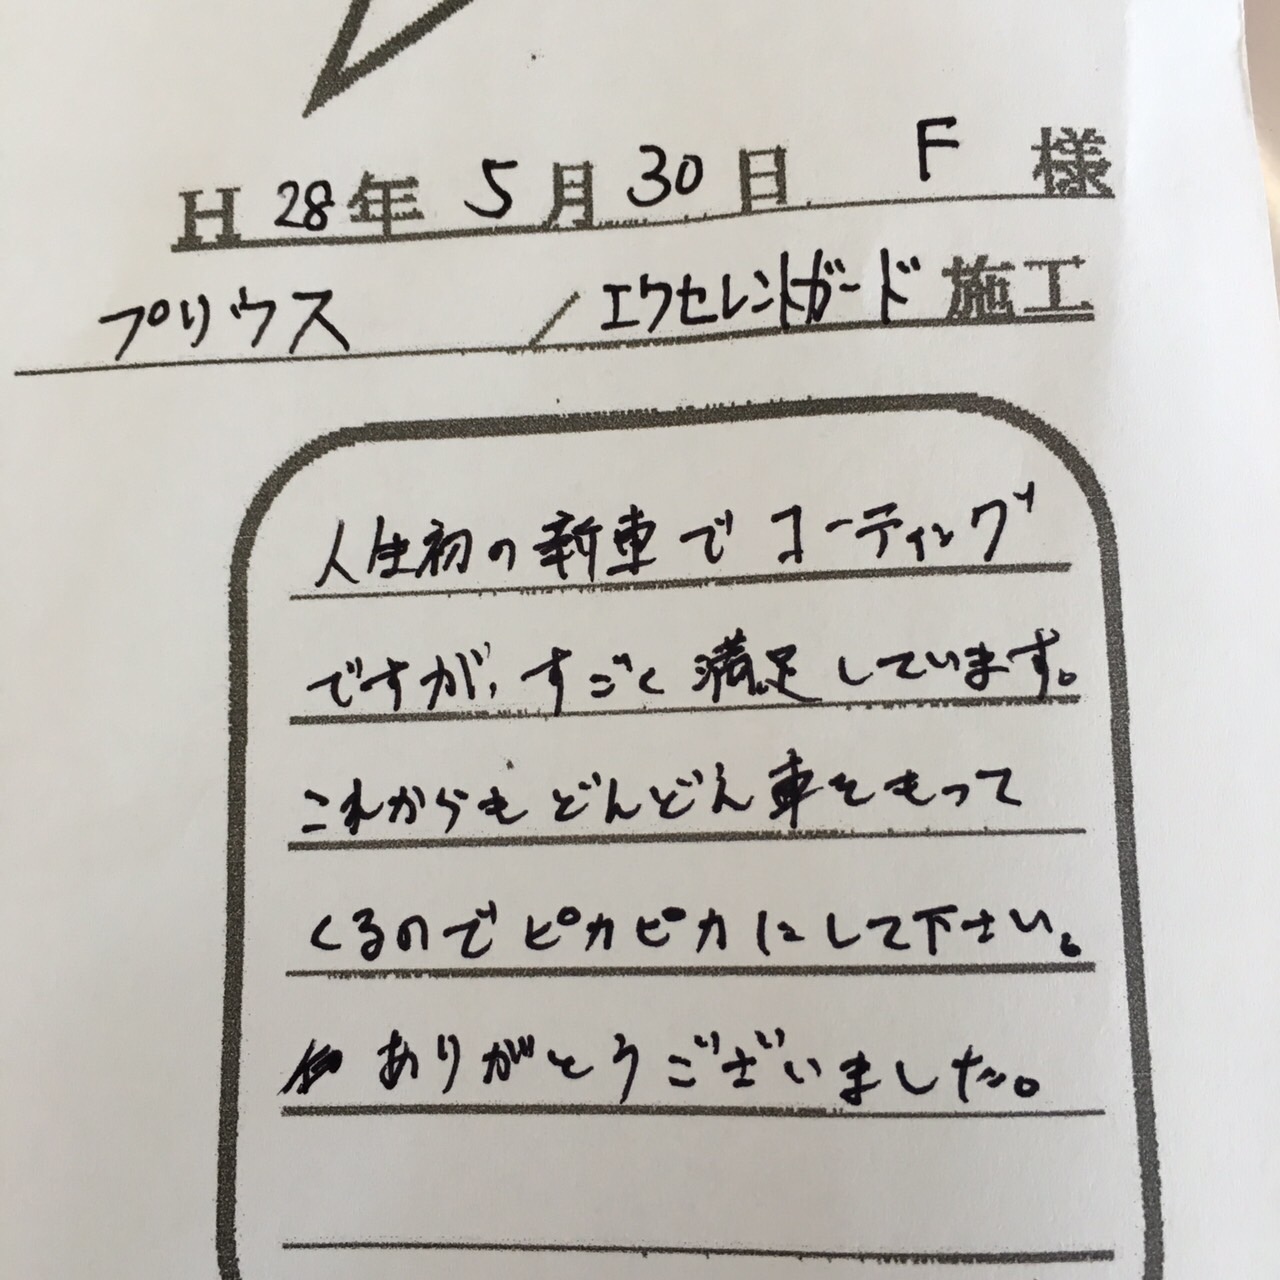 H 28年 5月 30日 F 様
プリウス / エクセレントガード 施工
人生初の新車でコーティング
ですが、すごく満足しています。
これからもどんどん車をもって
くるのでピカピカにして下さい。
ありがとうございました。